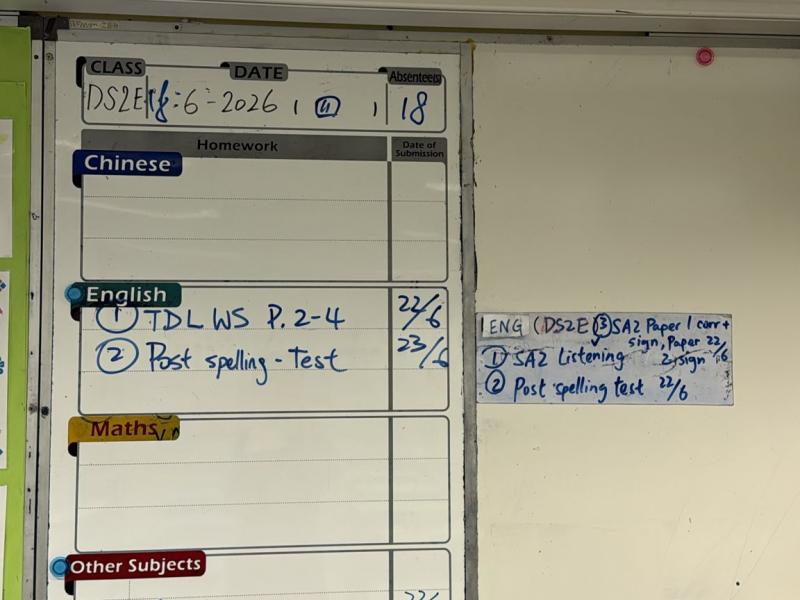 CLASS DATE Absentee(s)
DS2E 18-6-2026, (4) , 18
Homework Date of Submission
Chinese
English
① TDL WS P. 2-4 22/6
② Post spelling - Test 23/6
Maths
Other Subjects
22/
ENG (DS2E) ③ SA2 Paper 1 corr +
sign, Paper 22/6
① SA2 Listening 2, sign
② Post spelling test 22/6